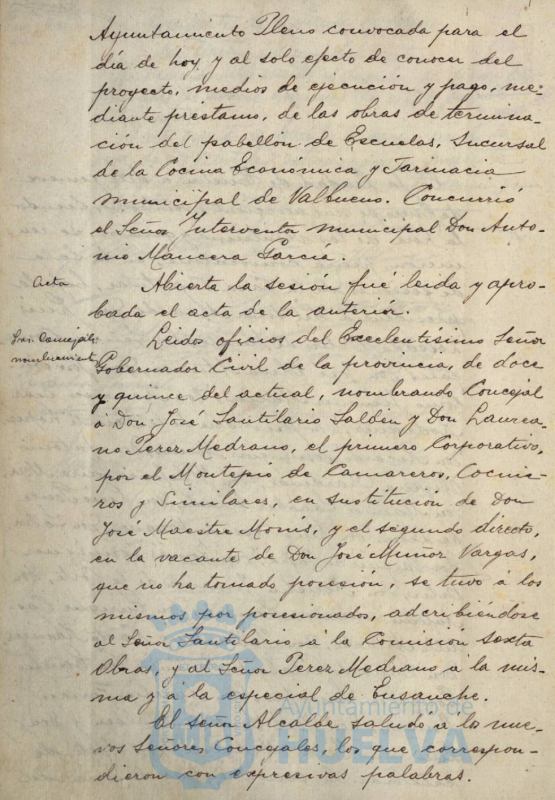 Ayuntamiento Pleno convocada para el
día de hoy, y al solo efecto de conocer del
proyecto, medios de ejecución y pago, me-
diante préstamo, de las obras de termina-
ción del pabellón de Escuelas, Sucursal
de la Cocina Económica y Farmacia
municipal de Valbueno. Concurrió
el Señor Interventor municipal Don Anto-
nio Mancera García.
Acta
Abierta la sesión fué leida y apro-
bada el acta de la anterior.
Sres. Concejales
nombramient
Leidos oficios del Excelentísimo Señor
Gobernador Civil de la provincia, de doce
y quince del actual, nombrando Concejal
á Don José Santilario Saldén y Don Laurea-
no Perez Medrano, el primero Corporativo,
por el Montepio de Camareros, Cocine-
ros y Similares, en sustitución de Don
José Maestre Monís, y el segundo directo,
en la vacante de Don José Muñoz Vargas,
que no ha tomado posesión, se tuvo á los
mismos por posesionados, adcribiéndose
al Señor Santilario á la Comisión sexta
Obras, y al Señor Perez Medrano á la mis-
ma y á la especial de Ensanche.
El señor Alcalde saludó á los nue-
vos Señores Concejales, los que correspon-
dieron con expresivas palabras.
Ayuntamiento de
HUELVA